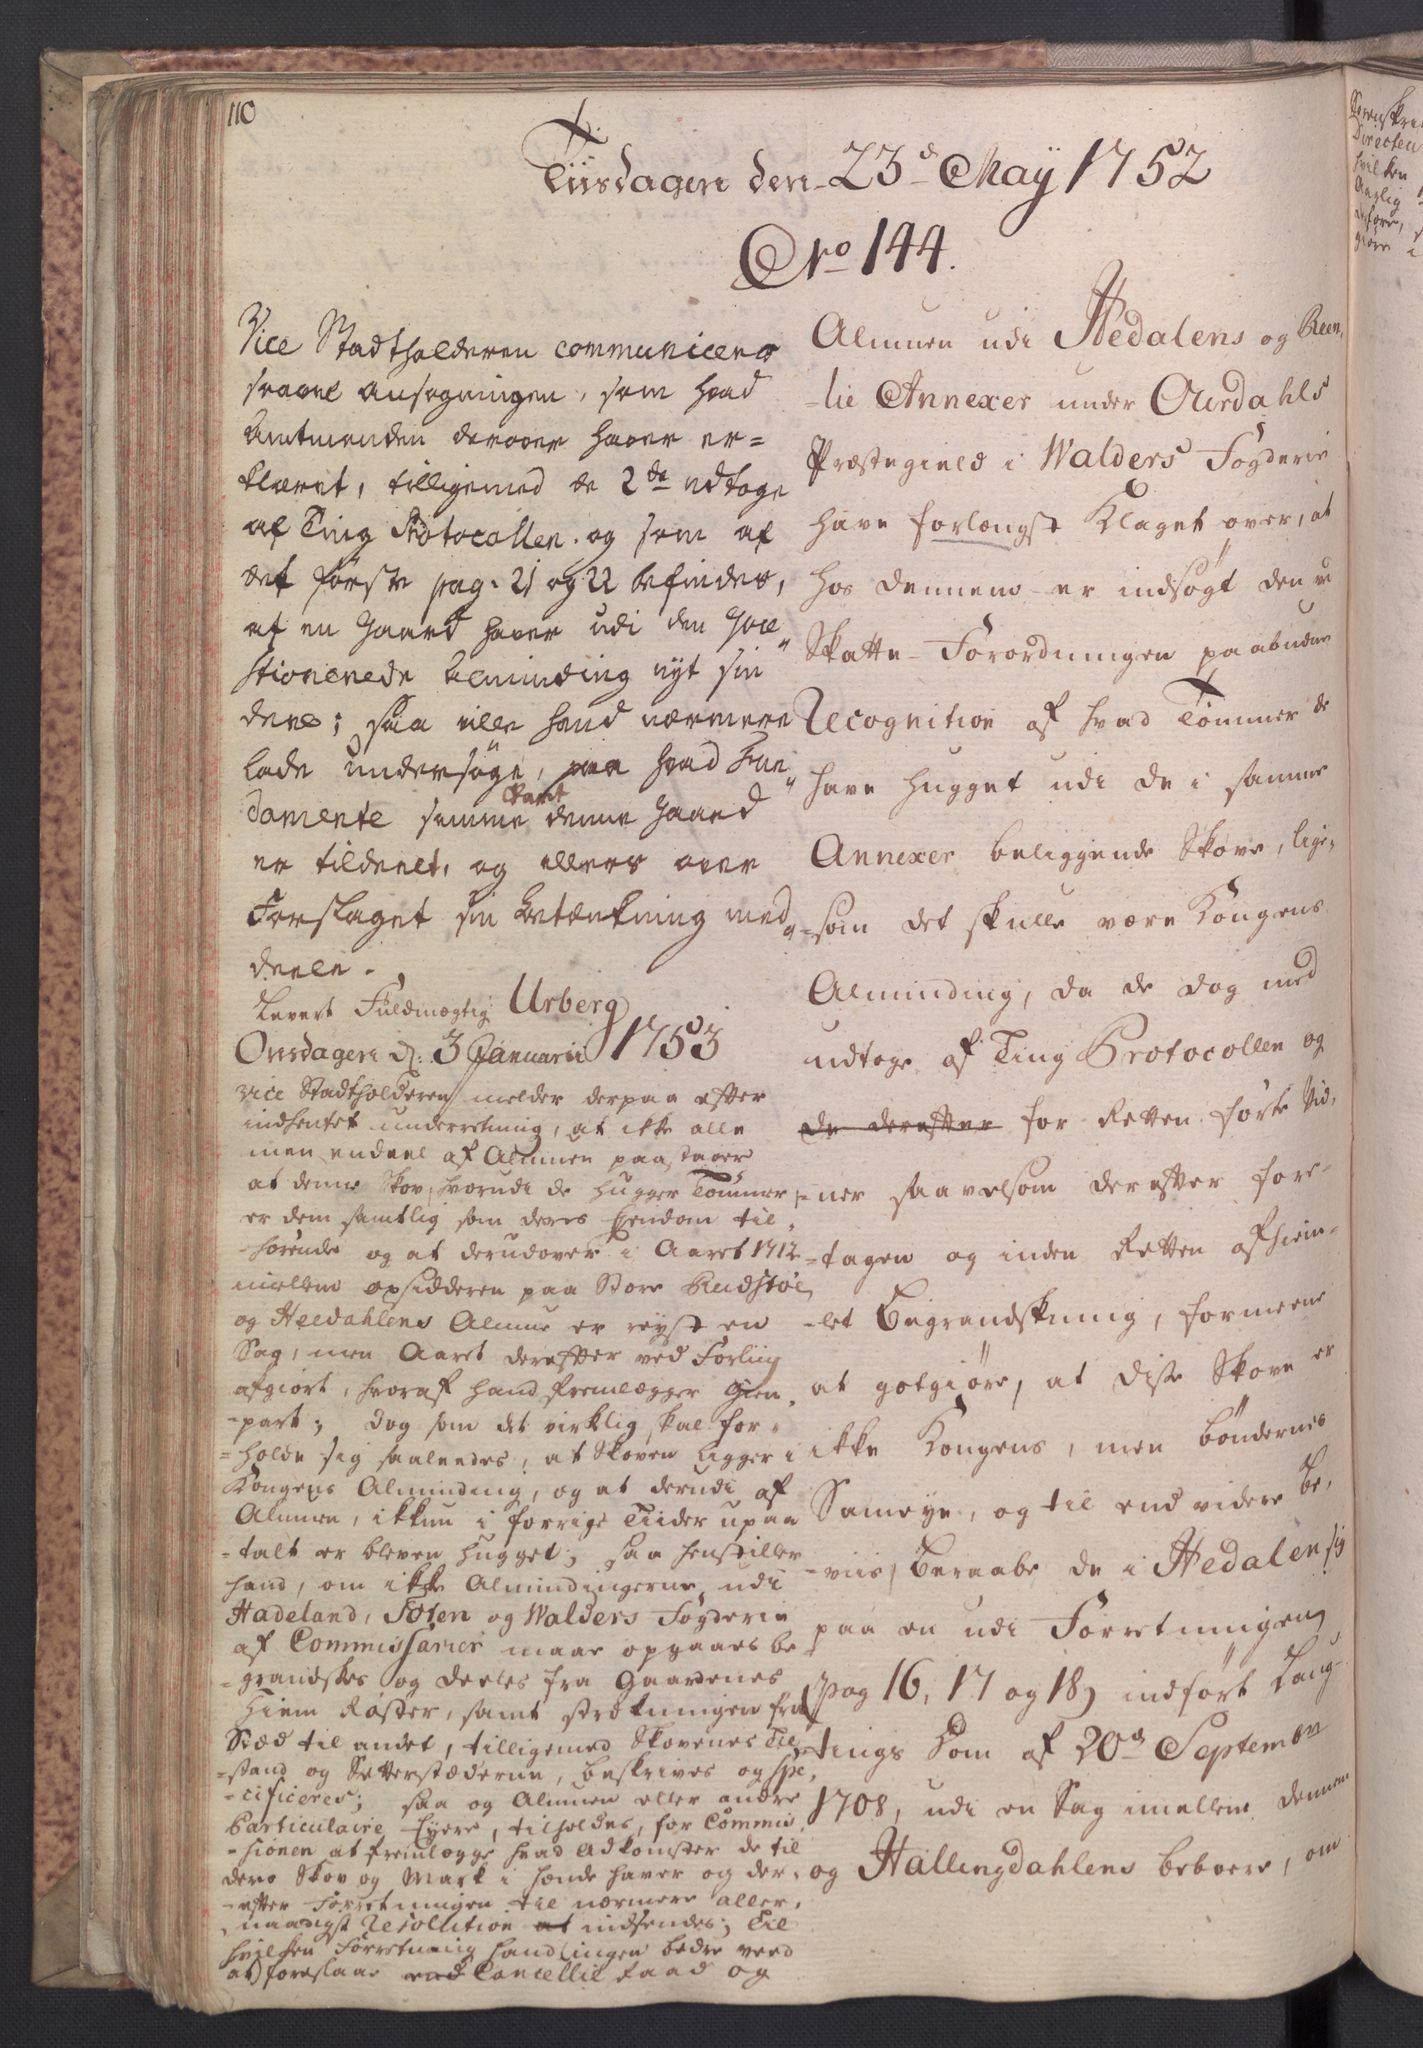 110
Tiisdagen den 23de May 1752
No 144.
Vice Stadtholderen communiceres
saavel ansøgningen, som hvad
Amtmanden derover haver er=
klæret, tilligemed de 2de udtoge
af Ting Protocollen. og som af
det første pag: 21 og 22 befindes,
at en Gaard haver udi den Qvæ
stionerede Alminding nyt sin
deel; saa ville hand nærmere
lade undersøge, paa hvad Fun
damente samme denne Gaard
er tildeelt, og ellers over
Forslaget sin Betænkning med
deele.
Levert Fuldmægtig Urberg
Onsdagen d: 3 Januarii 1753
Vice Stadtholderen melder derpaa efter
indhentet underretning, at ikke alle
men endeel af Almuen paastaaer
at denne Skov, hvorudi de hugger Tømmer
er dem samtlig som deres Eyendom til,
hørende og at derudover i Aaret 1712
imellem opsidderen paa Store Rudstøe
og Heedahlens Almue er reyst en
Sag, men Aaret derefter ved Forliig
afgiort, hvoraf hand fremlægger Gien,
-part; dog som det virklig skal for,
=holde sig saaleedes, at Skoven ligger i
Kongens Alminding, og at derudi af
Almuen, ikkun i forrige Tiider upaa
=talt er bleven hugget; saa henstiller
hand, om ikke Almindingerne, udi
Hadeland, Toten og Walders Fogderie
af Commissarier maae opgaaes be
=grandskes og deeles fra Gaardenes
Hiem Raster, samt strekningen fra
Stæd til andet, tilligemed Skovenes Til
=stand og Setterstæderne, beskrives og spe,
=cificeres; saa og Almuen eller andre
Particulaire Eyere, tilholdes, for Commis
=sionen at fremlægge hvad Adkomster de til
deres Skov og Mark i hænde haver og der,
=efter Forretningen til nærmere aller,
naadigst Resolution at indsendes; Til
hvilken Forretning handlingen bedre veed
at foreslaae end Cancellie raad og
Almuen udi Hedalens og Reen,
-lie Annexer under Ourdahls
Præstegield i Walders Fogderie
have forlængst klaget over, at
hos dennem er indsøgt den ve
Skatte-Forordningen paabudne
Recognition af hvad Tømmer de
have hugget udi de i samme
Annexer beliggende Skove, lige,
=som det skulle være Kongens
Alminding, da de dog med
udtoge af Ting Protocollen og
de derefter for Retten førte Vid,
=ner saavelsom derefter fore-
=tagen og inden Retten afhiem-
-let Begrandskning, formeene
at gotgiøre, at disse Skove er
ikke Kongens, men bøndernes
Sameye, og til end videre be,
=viis, beraabe de i Hedalen sig
paa en udi Forretningen
(pag 16, 17 og 18) indført Laug-
=tings Dom af 20de September
1708, udi en Sag imellem dennem
og Hallingdahlens beboere, om